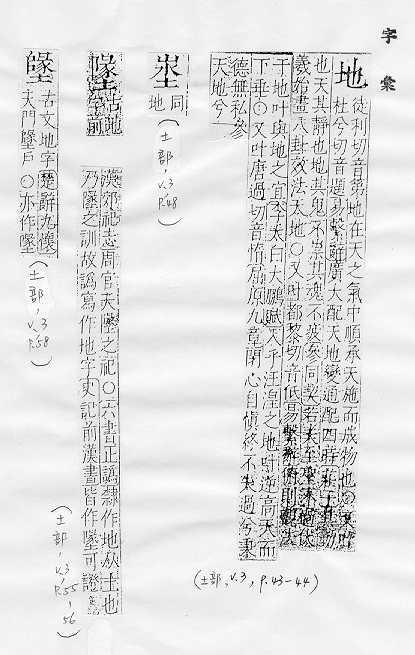 字彙
地
徒利切音第地在天之氣中順承天施而成物也○又叶
杜兮切音題易繫辭廣大配天地變通配四時莊子其動
也天其靜也地其鬼不祟其魂不疲參同契若夫至聖不過伏
羲始畫八卦效法天地○又叶都黎切音低易繫辭俯則觀法
于地叶與地之宜李太白大鵬賦 乎汪湟之地 逆高天而
下垂○又叶唐過切音惰屈原九章閉心自慎終不失過兮秉
德無私參
天地兮
(土部, v.3, p.43-44)
埊
同
地
(土部, v.3, p.48)
墬
古地
字前
漢郊祀志周官天墬之祀○六書正譌隸作地从土也
乃墬之訓故譌寫作地字史記前漢書皆作墬可證
(土部, v.3, p.55, 56)
古文地字楚辭九懷
天門墬戶○亦作墬
(土部, v.3, p.58)